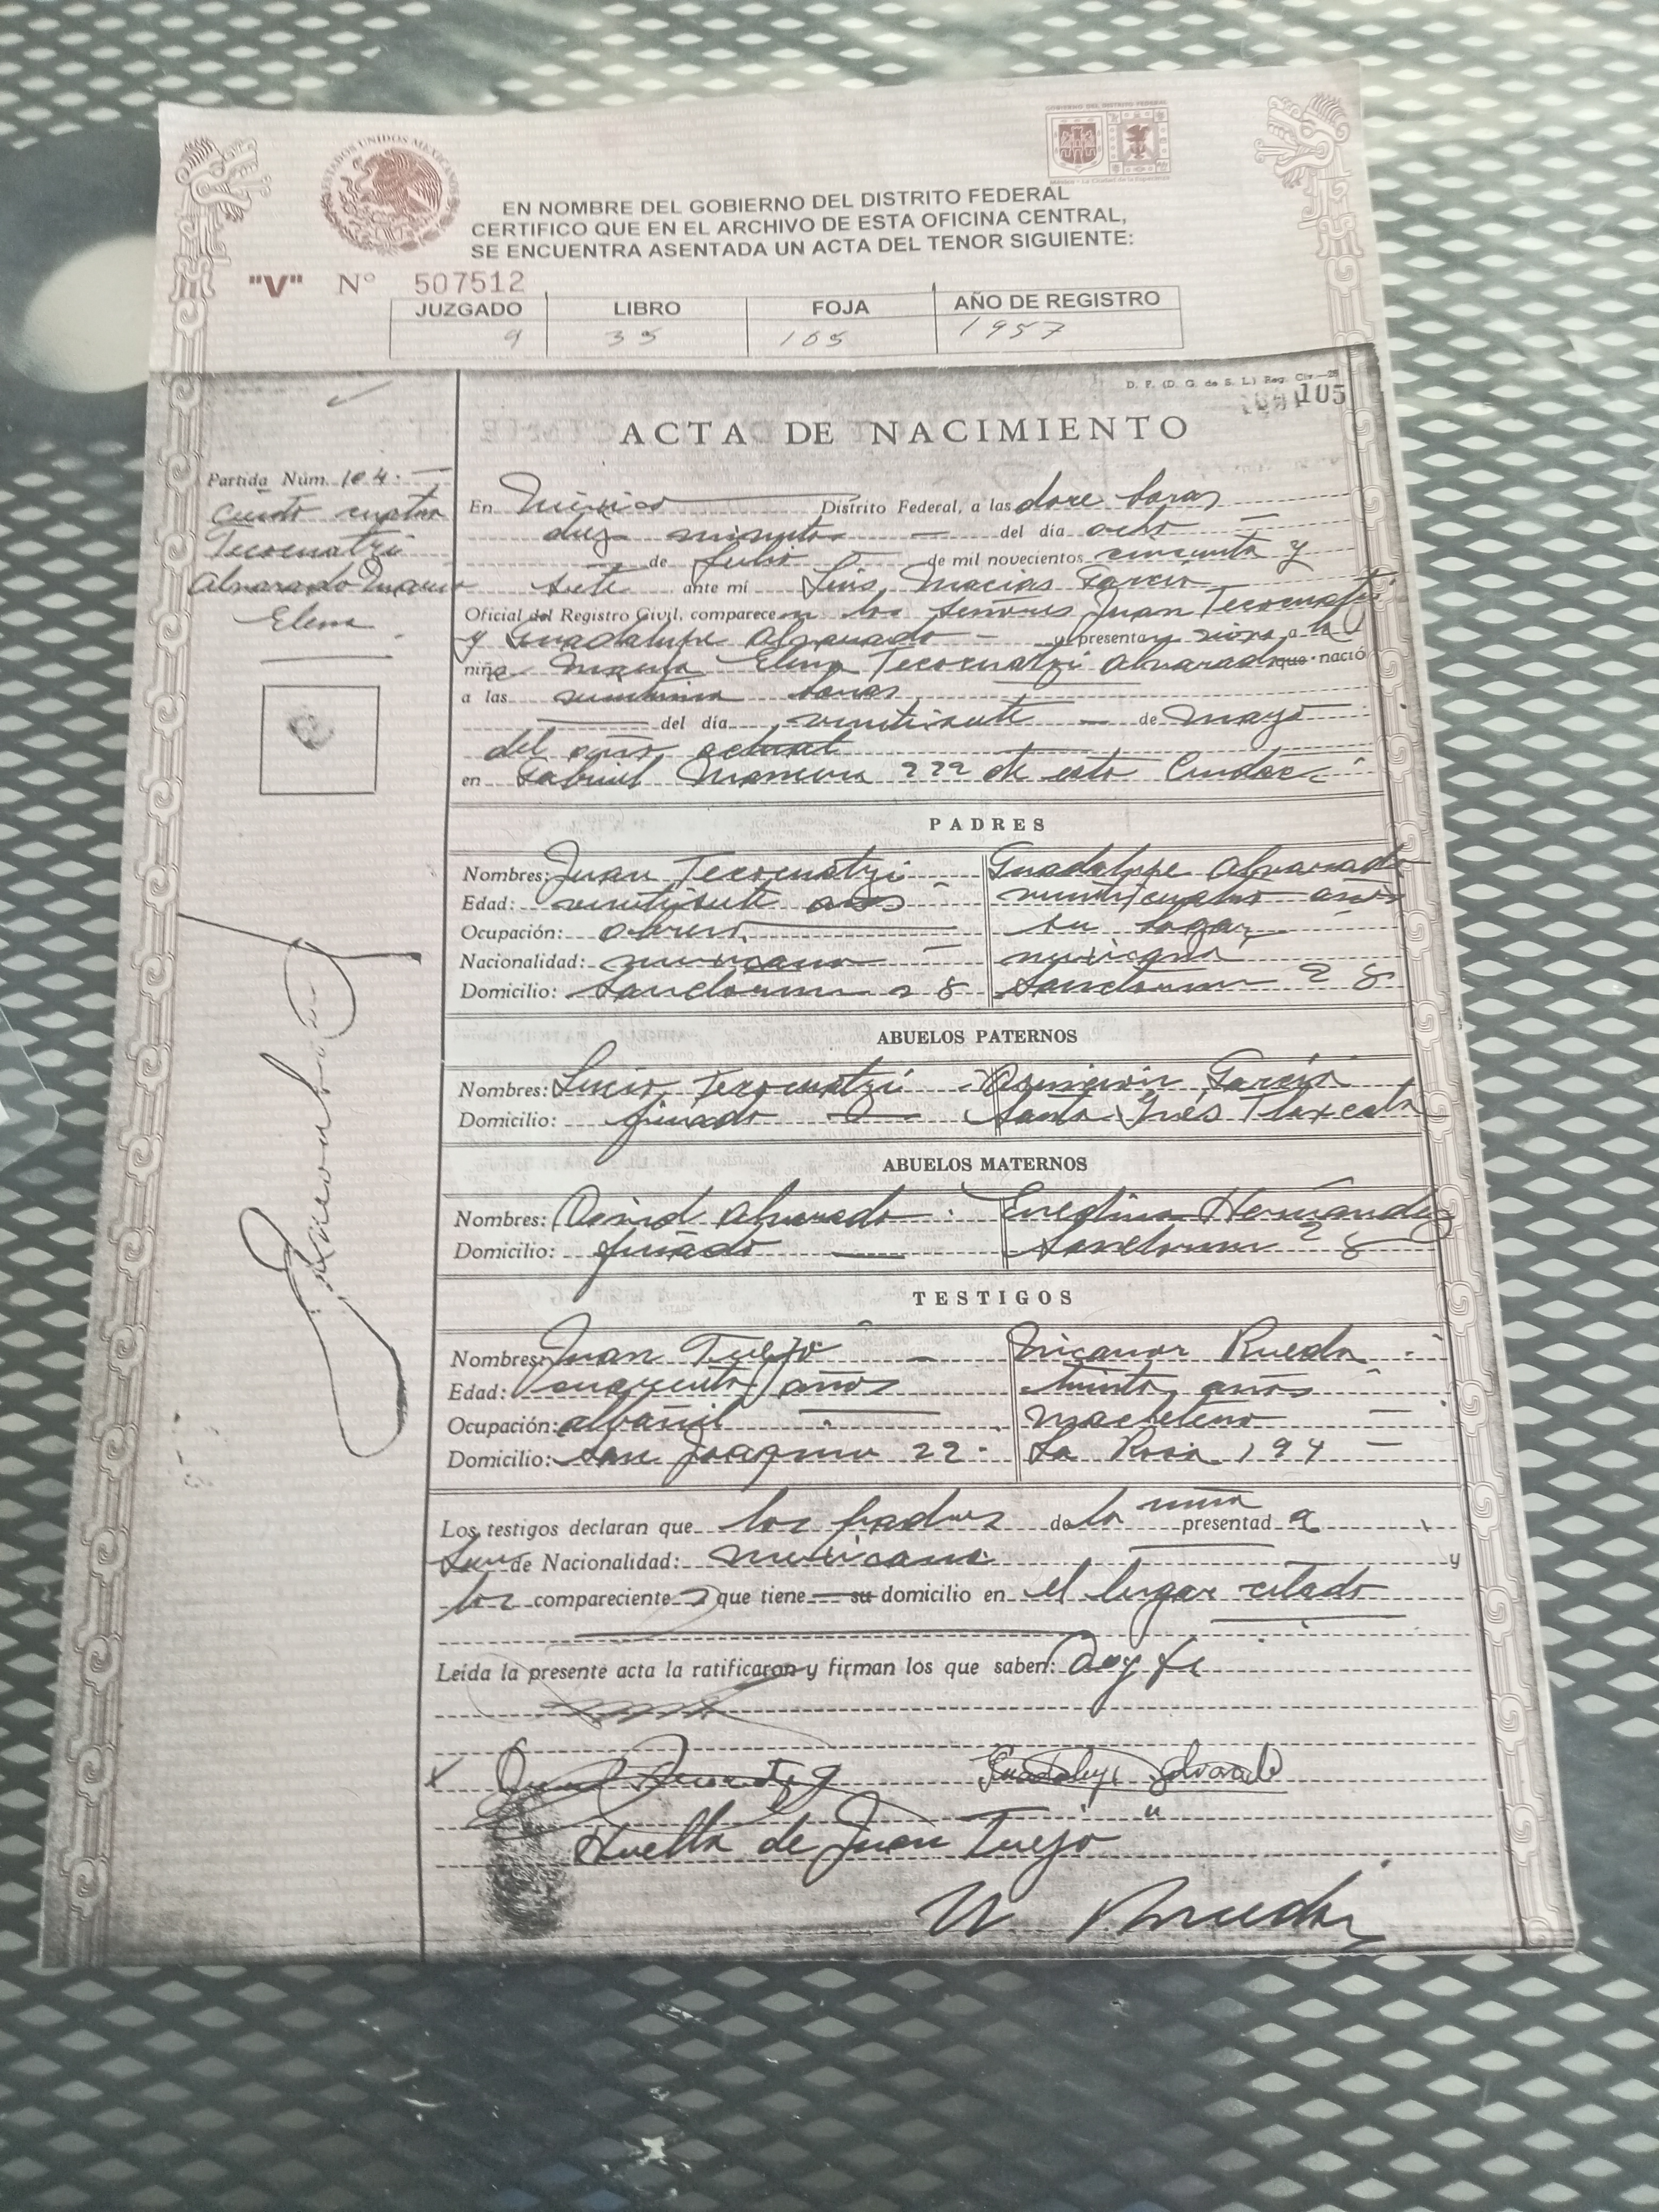 ESTADOS UNIDOS MEXICANOS
GOBIERNO DEL DISTRITO FEDERAL
México - La Ciudad de la Esperanza
EN NOMBRE DEL GOBIERNO DEL DISTRITO FEDERAL
CERTIFICO QUE EN EL ARCHIVO DE ESTA OFICINA CENTRAL,
SE ENCUENTRA ASENTADA UN ACTA DEL TENOR SIGUIENTE:
"V" Nº 507512
JUZGADO LIBRO FOJA AÑO DE REGISTRO
9 35 105 1957
D. F. (D. G. de S. L.) Reg. Civ.—28
105
ACTA DE NACIMIENTO
Partida Núm. 104.
ciento cuatro
Tecocuatzi
Alvarado Maria
Elena
En México Distrito Federal, a las doce horas
diez minutos del día ocho
de Julio de mil novecientos cincuenta y
siete ante mí Luis Macias Garcia
Oficial del Registro Civil, comparecen los señores Juan Tecocuatzi
y Guadalupe Alvarado y presentan viva a la
niña Maria Elena Tecocuatzi Alvarado que nació
a las horas
del día veintisiete de Mayo
del año actual
en Gabriel Mancera 222 de esta Ciudad
PADRES
Nombres: Juan Tecocuatzi Guadalupe Alvarado
Edad: veintisiete años veinticuatro años
Ocupación: obrero su hogar
Nacionalidad: mexicana mexicana
Domicilio: 28 28
ABUELOS PATERNOS
Nombres: Lucio Tecocuatzi Garcia
Domicilio: finado Santa Inés Tlaxcala
ABUELOS MATERNOS
Nombres: David Alvarado Hernández
Domicilio: finado 28
TESTIGOS
Nombres: Juan Trejo Nicanor Rueda
Edad: cuarenta años treinta años
Ocupación: albañil
Domicilio: San Joaquin 22 La Rosa 194
Los testigos declaran que los padres de la niña presentada
son de Nacionalidad: mexicana y
los comparecientes que tiene su domicilio en el lugar citado
Leída la presente acta la ratificaron y firman los que saben: Doy fe
Guadalupe Alvarado
Huella de Juan Trejo
N Rueda